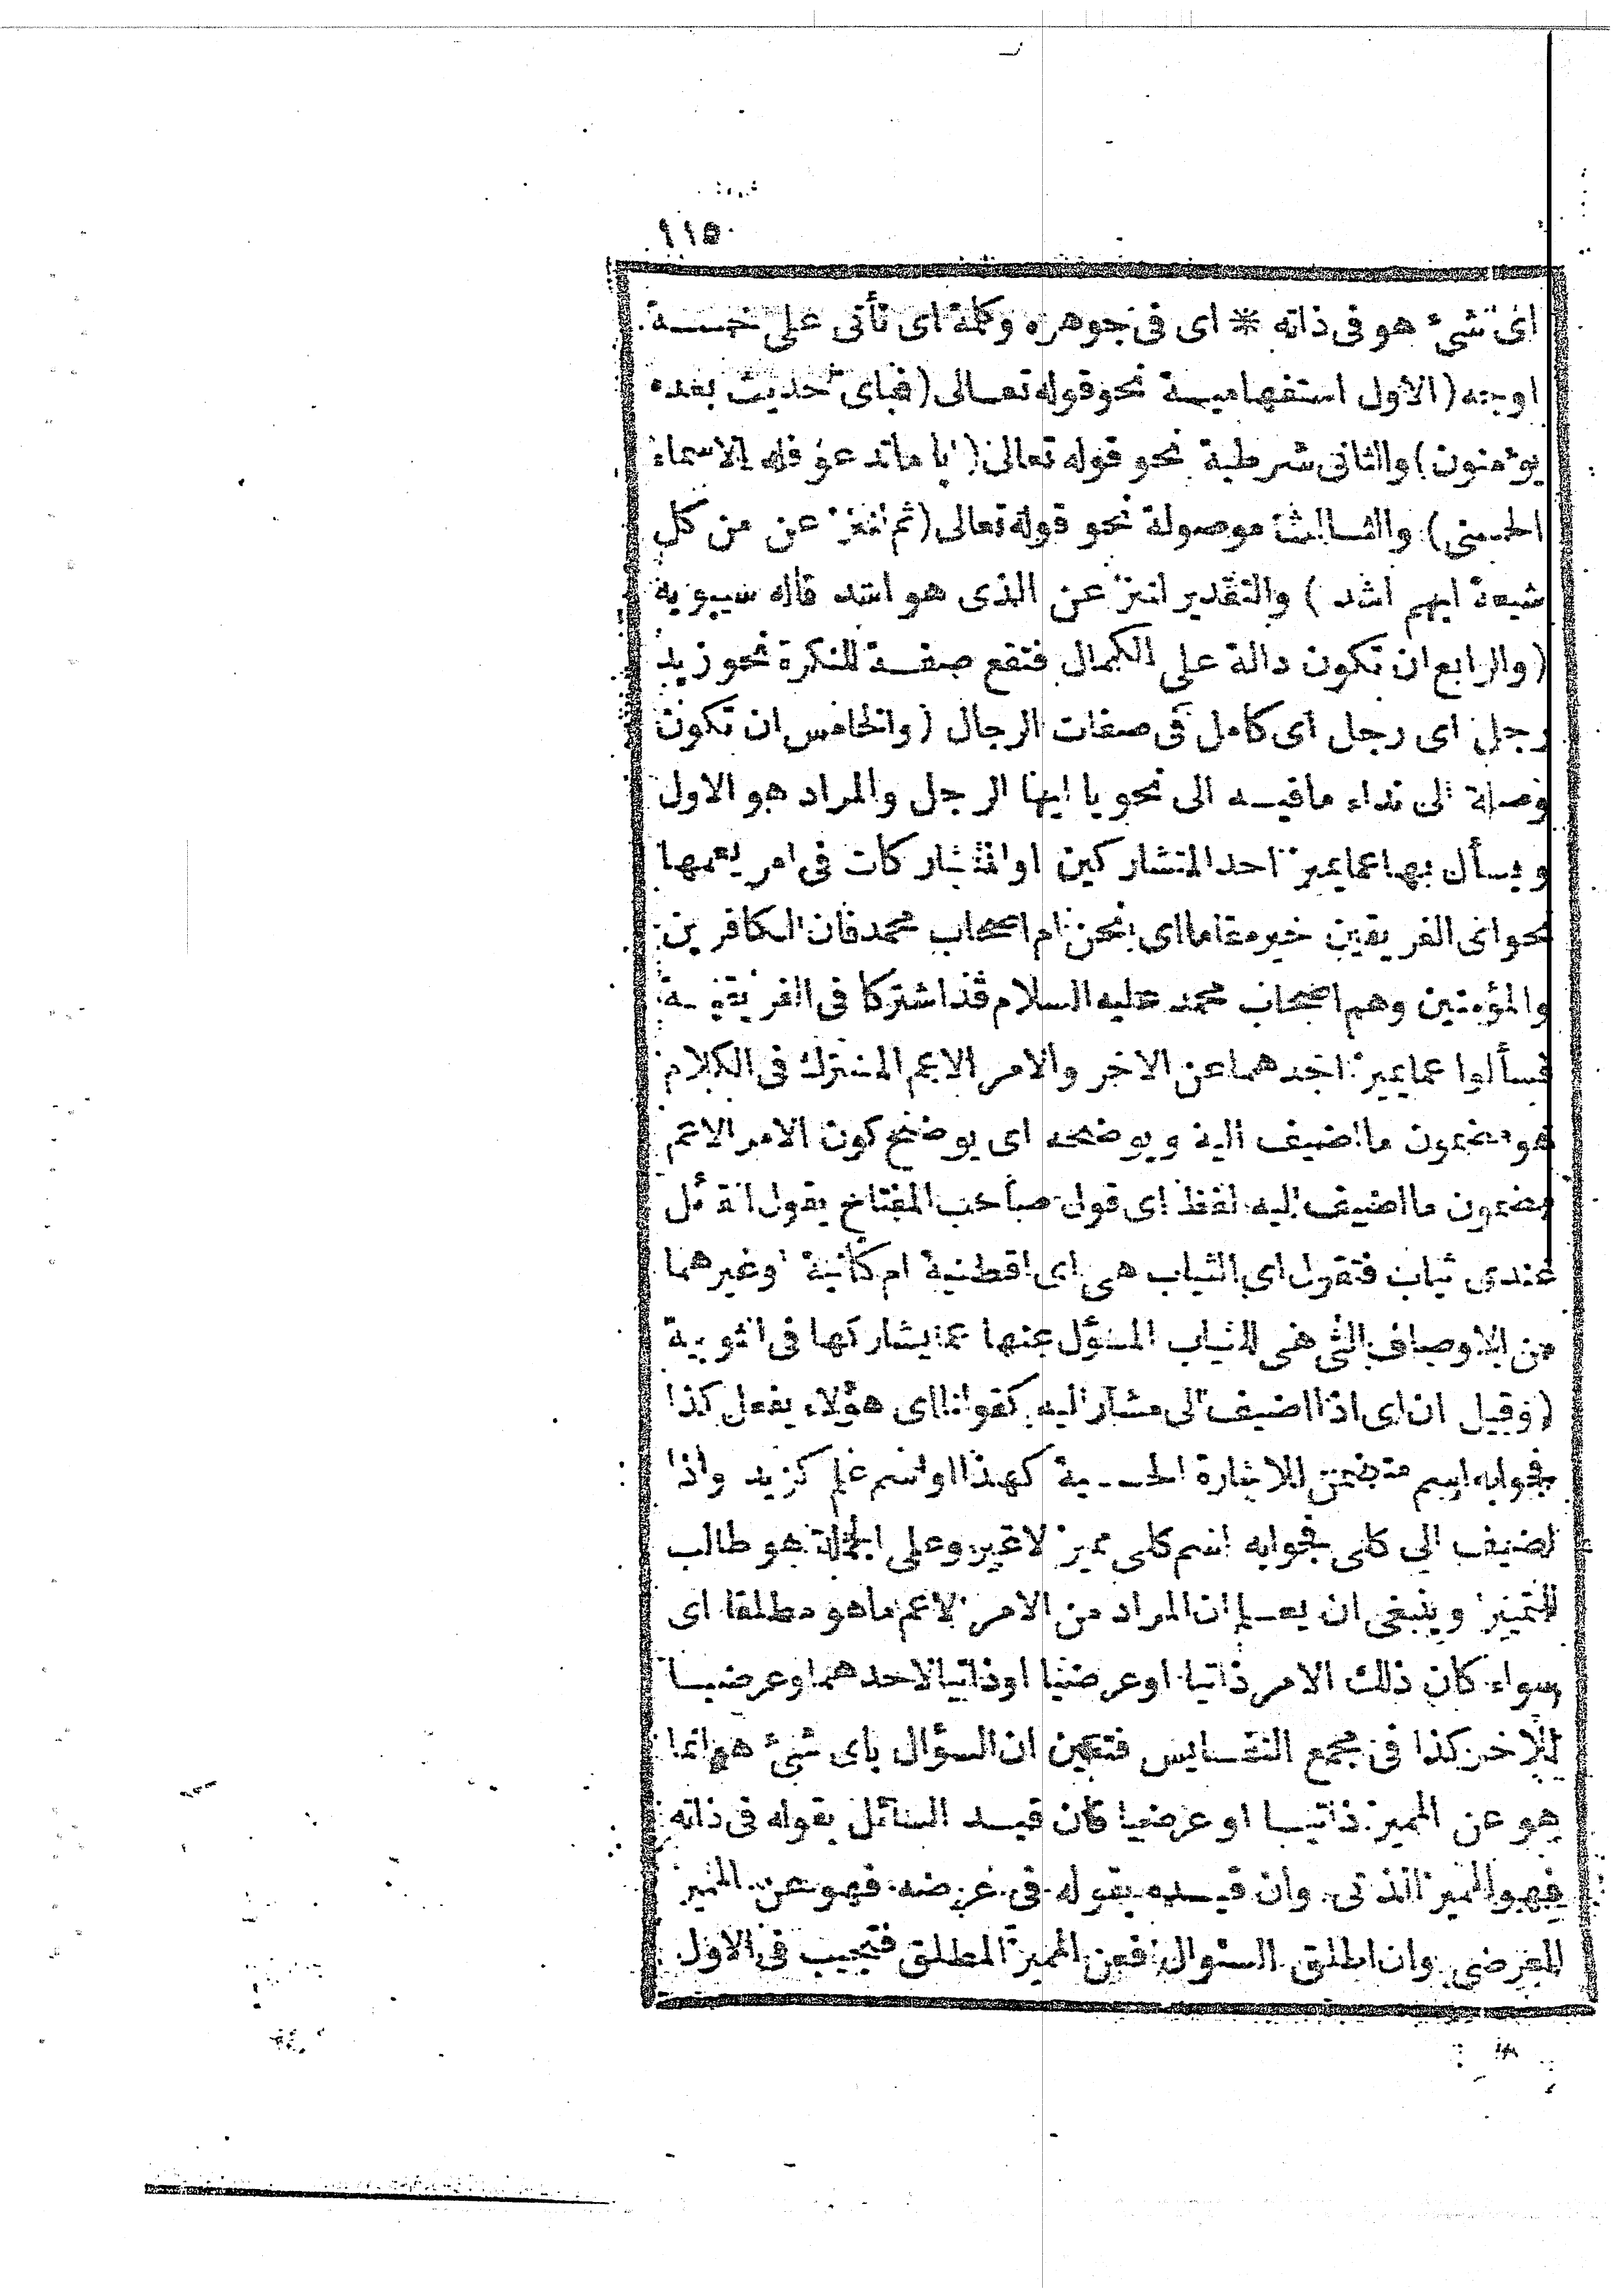 ١١٥
اى شئ هو فى ذاته * اى فى جوهره وكلمة اى تأتى على خمسة
اوجه (الاول استفهامية نحو قوله تعالى (فباى حديث بعده
يؤمنون) والثانى شرطية نحو قوله تعالى (ايا ما تدعو فله الاسماء
الحسنى) والثالث موصولة نحو قوله تعالى (ثم لننزعن من كل
شيعة ايهم اشد) والتقدير لننزعن الذى هو اشد قاله سيبويه
(والرابع ان تكون دالة على الكمال فتقع صفة للنكرة نحو زيد
رجل اى رجل اى كامل فى صفات الرجال (والخامس ان تكون
وصلة الى نداء ما فيه ال نحو يا ايها الرجل والمراد هو الاول
ويسأل بها عما يميز احد المتشاركين او المتشاركات فى امر يعمها
نحو اى الفريقين خير مقاما اى انحن ام اصحاب محمد فان الكافرين
والمؤمنين وهم اصحاب محمد عليه السلام قد اشتركا فى الفريقية
فسألوا عما يميز احدهما عن الاخر والامر الاعم المشترك فى الكلام
هو مضمون ما اضيف اليه ويوضحه اى يوضح كون الامر الاعم
مضمون ما اضيف اليه لفظ اى قول صاحب المفتاح يقول القائل
عندى ثياب فتقول اى الثياب هى اى اقطنية ام كتانية او غيرهما
من الاوصاف التى هى للثياب المسؤل عنها عما يشاركها فى الثوبية
(وقيل ان اى اذا اضيف الى مشار اليه كقولنا اى هؤلاء يفعل كذا
فجوابه اسم متضمن للاشارة الحسية كهذا او اسم علم كزيد واذا
اضيف الى كلى فجوابه اسم كلى مميز لا غير وعلى الجملة هو طالب
للتمييز وينبغى ان يعلم ان المراد من الامر الاعم ما هو مطلقا اى
سواء كان ذلك الامر ذاتيا او عرضيا او ذاتيا لاحدهما وعرضيا
للاخر كذا فى مجمع النفايس فتبين ان السؤال باى شئ هو انما
هو عن المميز ذاتيا او عرضيا فان قيد السائل بقوله فى ذاته
فهو المميز الذاتى وان قيده بقوله فى عرضه فهو عن المميز
العرضى وان اطلق السئوال فعن المميز المطلق فتجيب فى الاول